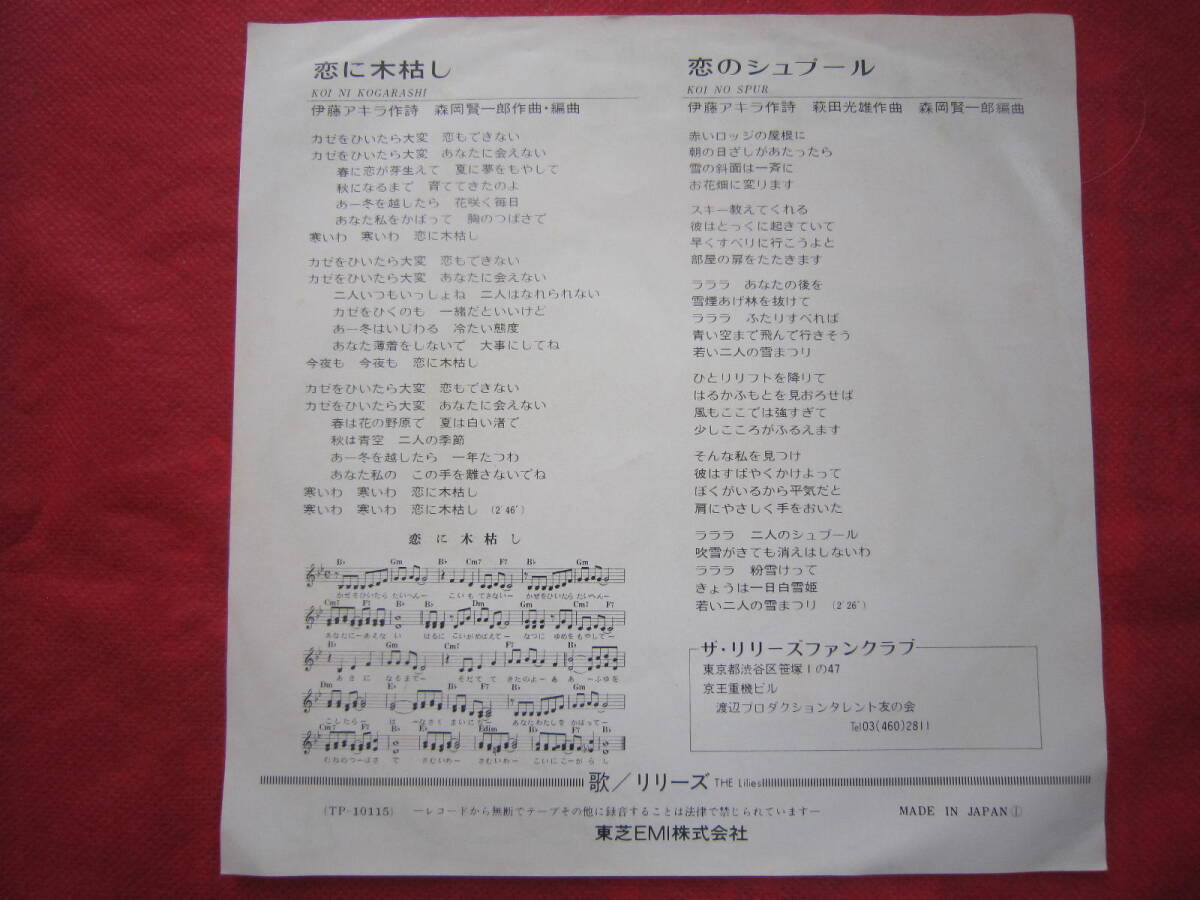 恋に木枯し
KOI NI KOGARASHI
伊藤アキラ作詩 森岡賢一郎作曲・編曲
カゼをひいたら大変 恋もできない
カゼをひいたら大変 あなたに会えない
春に恋が芽生えて 夏に夢をもやして
秋になるまで 育ててきたのよ
あー冬を越したら 花咲く毎日
あなた私をかばって 胸のつばさで
寒いわ 寒いわ 恋に木枯し
カゼをひいたら大変 恋もできない
カゼをひいたら大変 あなたに会えない
二人いつもいっしょね 二人はなれられない
カゼをひくのも 一緒だといいけど
あー冬はいじわる 冷たい態度
あなた薄着をしないで 大事にしてね
今夜も 今夜も 恋に木枯し
カゼをひいたら大変 恋もできない
カゼをひいたら大変 あなたに会えない
春は花の野原で 夏は白い渚で
秋は青空 二人の季節
あー冬を越したら 一年たつわ
あなた私の この手を離さないでね
寒いわ 寒いわ 恋に木枯し
寒いわ 寒いわ 恋に木枯し (2′46″)
恋に木枯し
B♭ Gm B♭ Cm7 F7 B♭ Gm
かぜをひいたら たいへんー こいも できないー かぜをひいたら たいへんー
Cm7 F7 B♭ B♭ Dm Gm Cm7 F7
あなたにーあえな い はるに こいがめばえてー なつに ゆめをもやしてー
B♭ Gm Cm7 F7 B♭
あきに なるまでー そだてて きたのよー ああ ーふゆを
Dm E♭ F7 B♭ Dm Gm
こしたらー はーなさく まいにちー あなたわたしを かばってー
Cm7 F7 B♭ E♭ Edim B♭ F7 B♭
むねのつーばさ で さむいわー さむいわー こいにこーがらし
恋のシュプール
KOI NO SPUR
伊藤アキラ作詩 萩田光雄作曲 森岡賢一郎編曲
赤いロッジの屋根に
朝の日ざしがあたったら
雪の斜面は一斉に
お花畑に変ります
スキー教えてくれる
彼はとっくに起きていて
早くすべりに行こうよと
部屋の扉をたたきます
ラララ あなたの後を
雪煙あげ林を抜けて
ラララ ふたりすべれば
青い空まで飛んで行きそう
若い二人の雪まつり
ひとりリフトを降りて
はるかふもとを見おろせば
風もここでは強すぎて
少しこころがふるえます
そんな私を見つけ
彼はすばやくかけよって
ぼくがいるから平気だと
肩にやさしく手をおいた
ラララ 二人のシュプール
吹雪がきても消えはしないわ
ラララ 粉雪けって
きょうは一日白雪姫
若い二人の雪まつり (2′26″)
ザ・リリーズファンクラブ
東京都渋谷区笹塚1の47
京王重機ビル
渡辺プロダクションタレント友の会
Tel03(460)2811
歌／リリーズ THE Lilies
(TP-10115) ーレコードから無断でテープその他に録音することは法律で禁じられていますー MADE IN JAPAN Ⓘ
東芝EMI株式会社